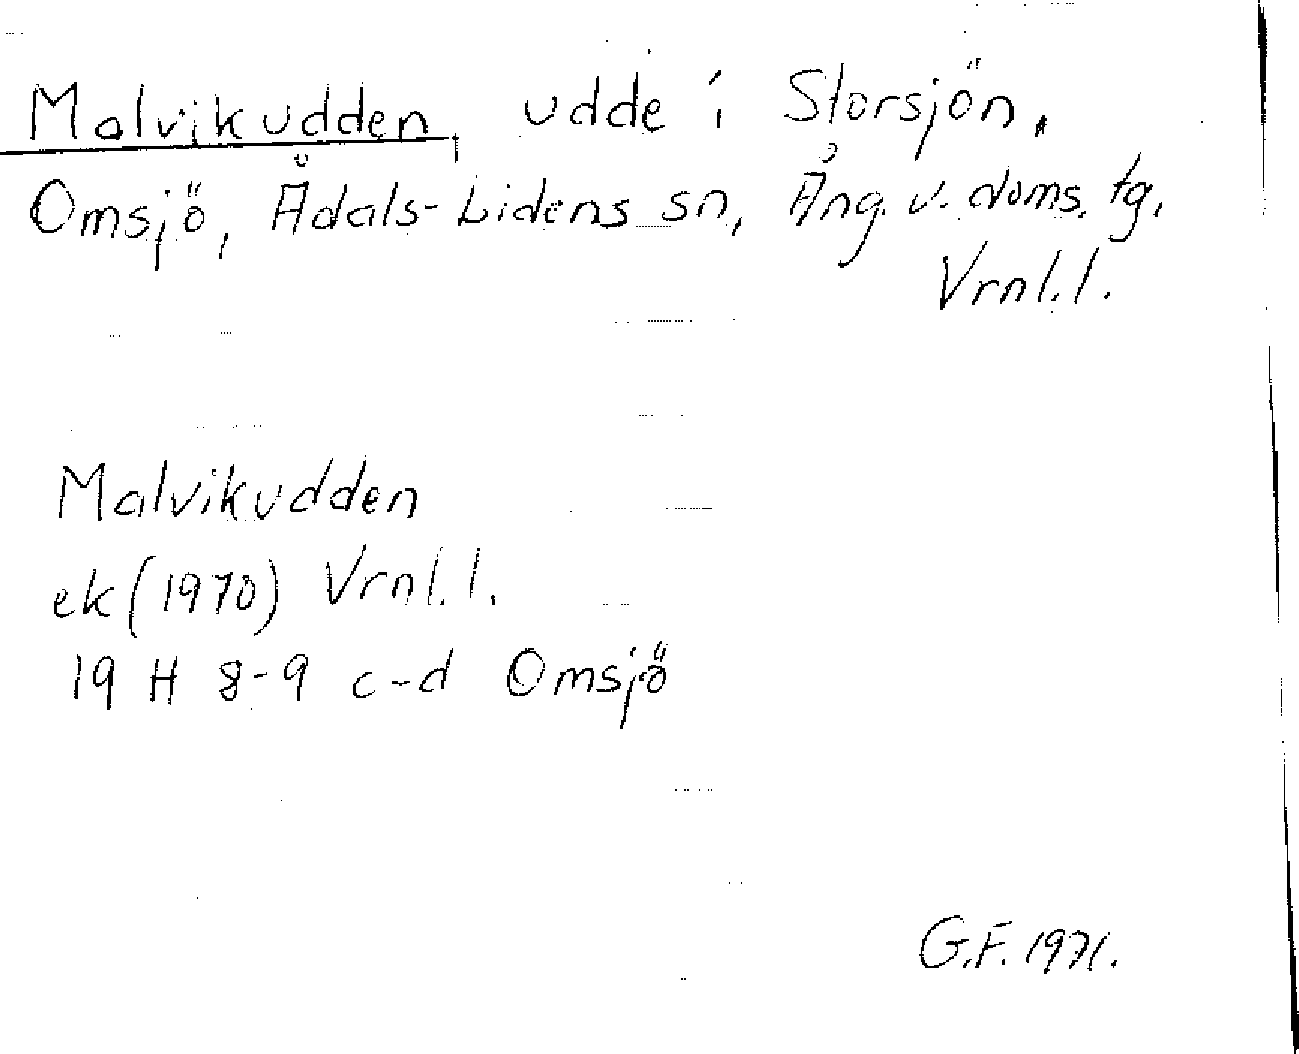 Malvikudden, udde i Storsjön,
Omsjö, Ådals-Lidens sn, Ång. v. doms. tg.
Vrnl. l.
Malvikudden
ek (1970) Vrnl. l.
19 H 8-9 c-d Omsjö
G.F. 1971.